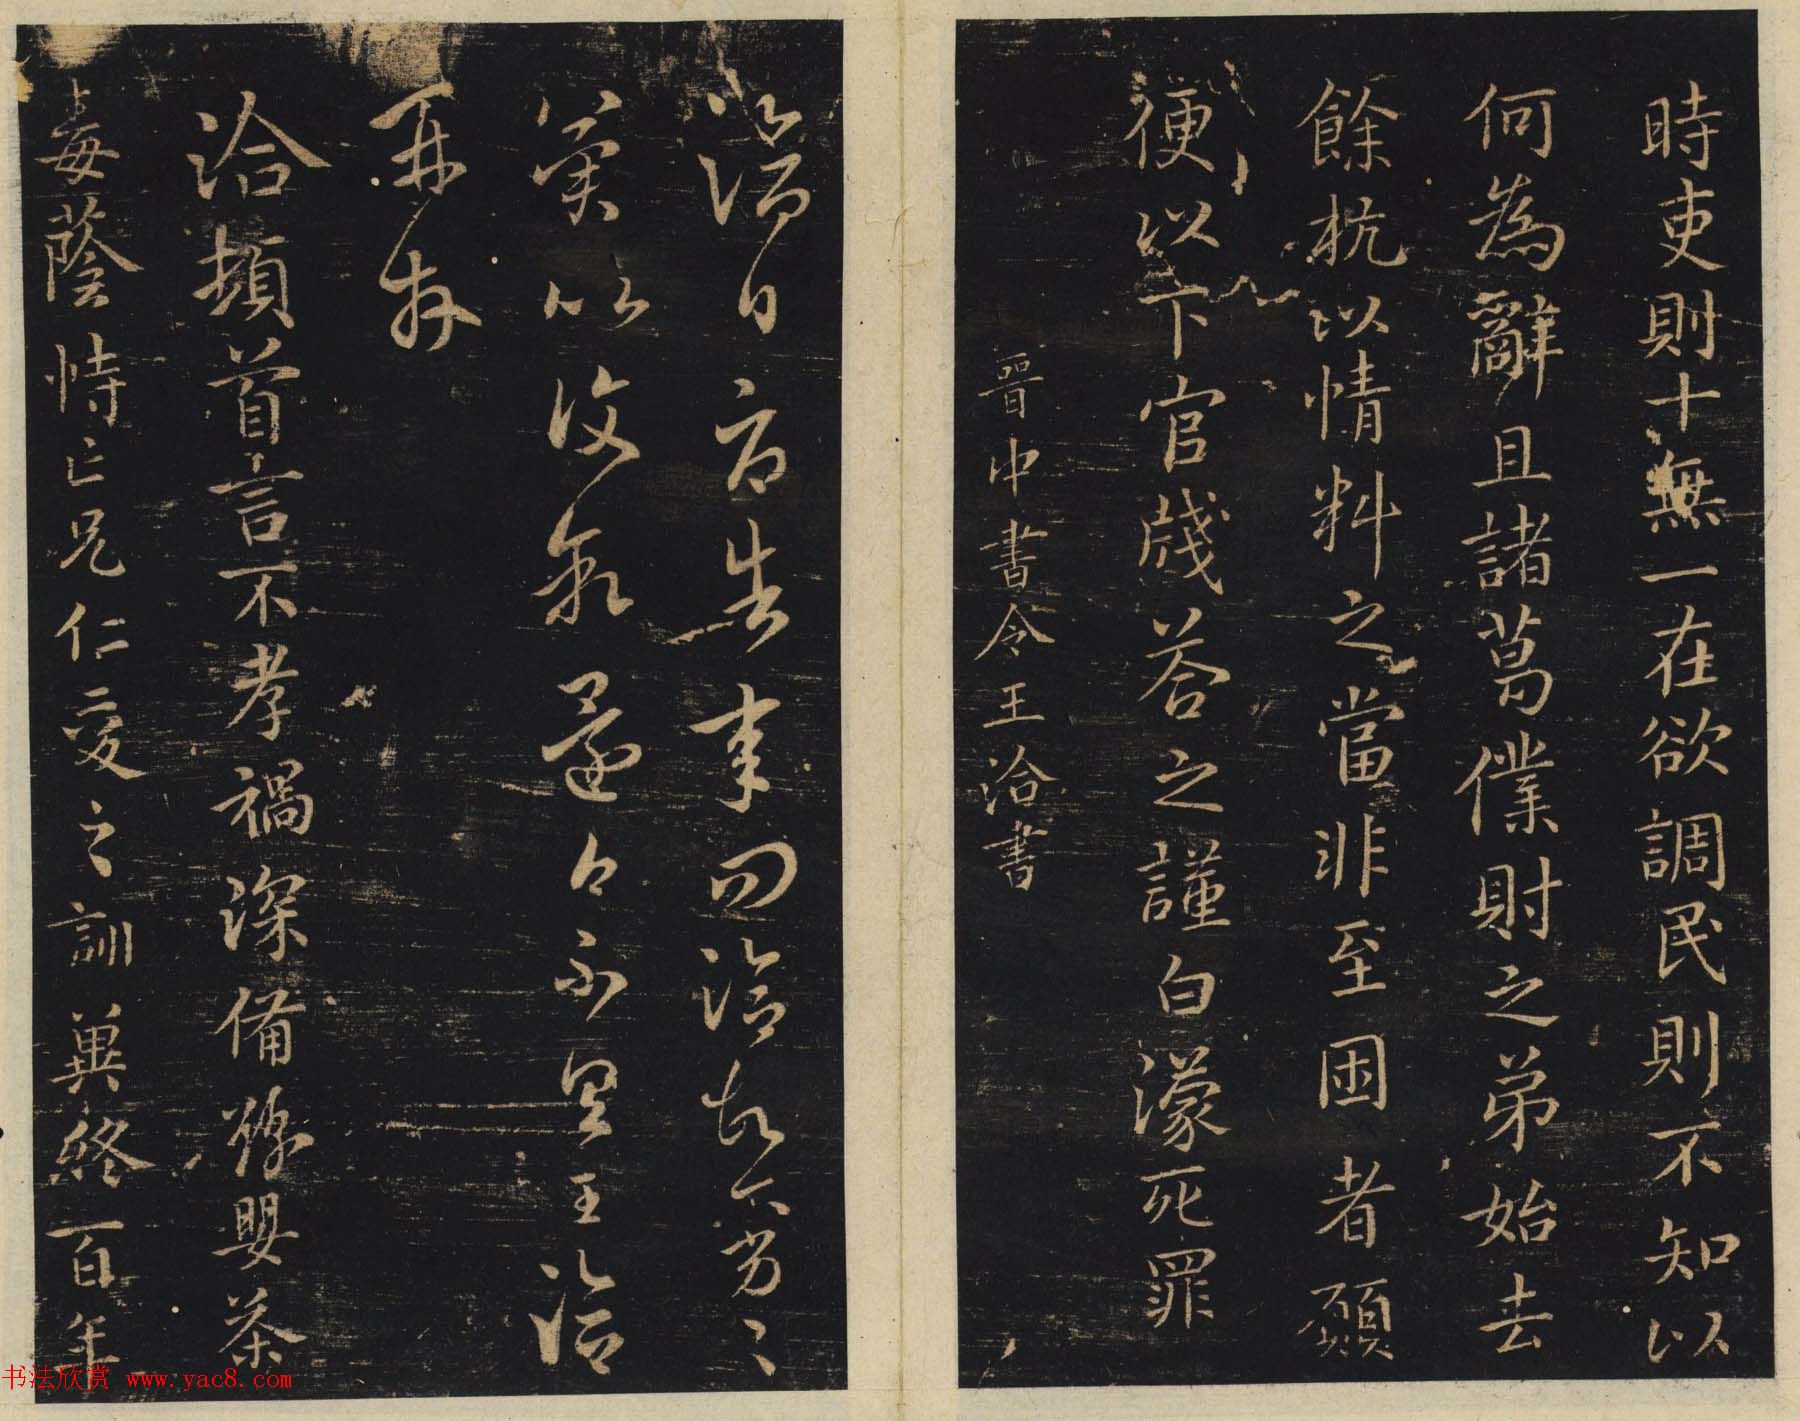 時吏則十無一在欲調民則不知以
何為辭且諸葛僕財之弟始去
餘杭以情料之當非至困者願
便以下官牋答之謹白濛死罪
晉中書令王洽書
洽告問洽
還白不具王洽
再拜
洽頓首言不孝禍深備豫嬰荼
毒蔭恃亡兄仁愛之訓冀終百年
书法欣赏 www.yac8.com